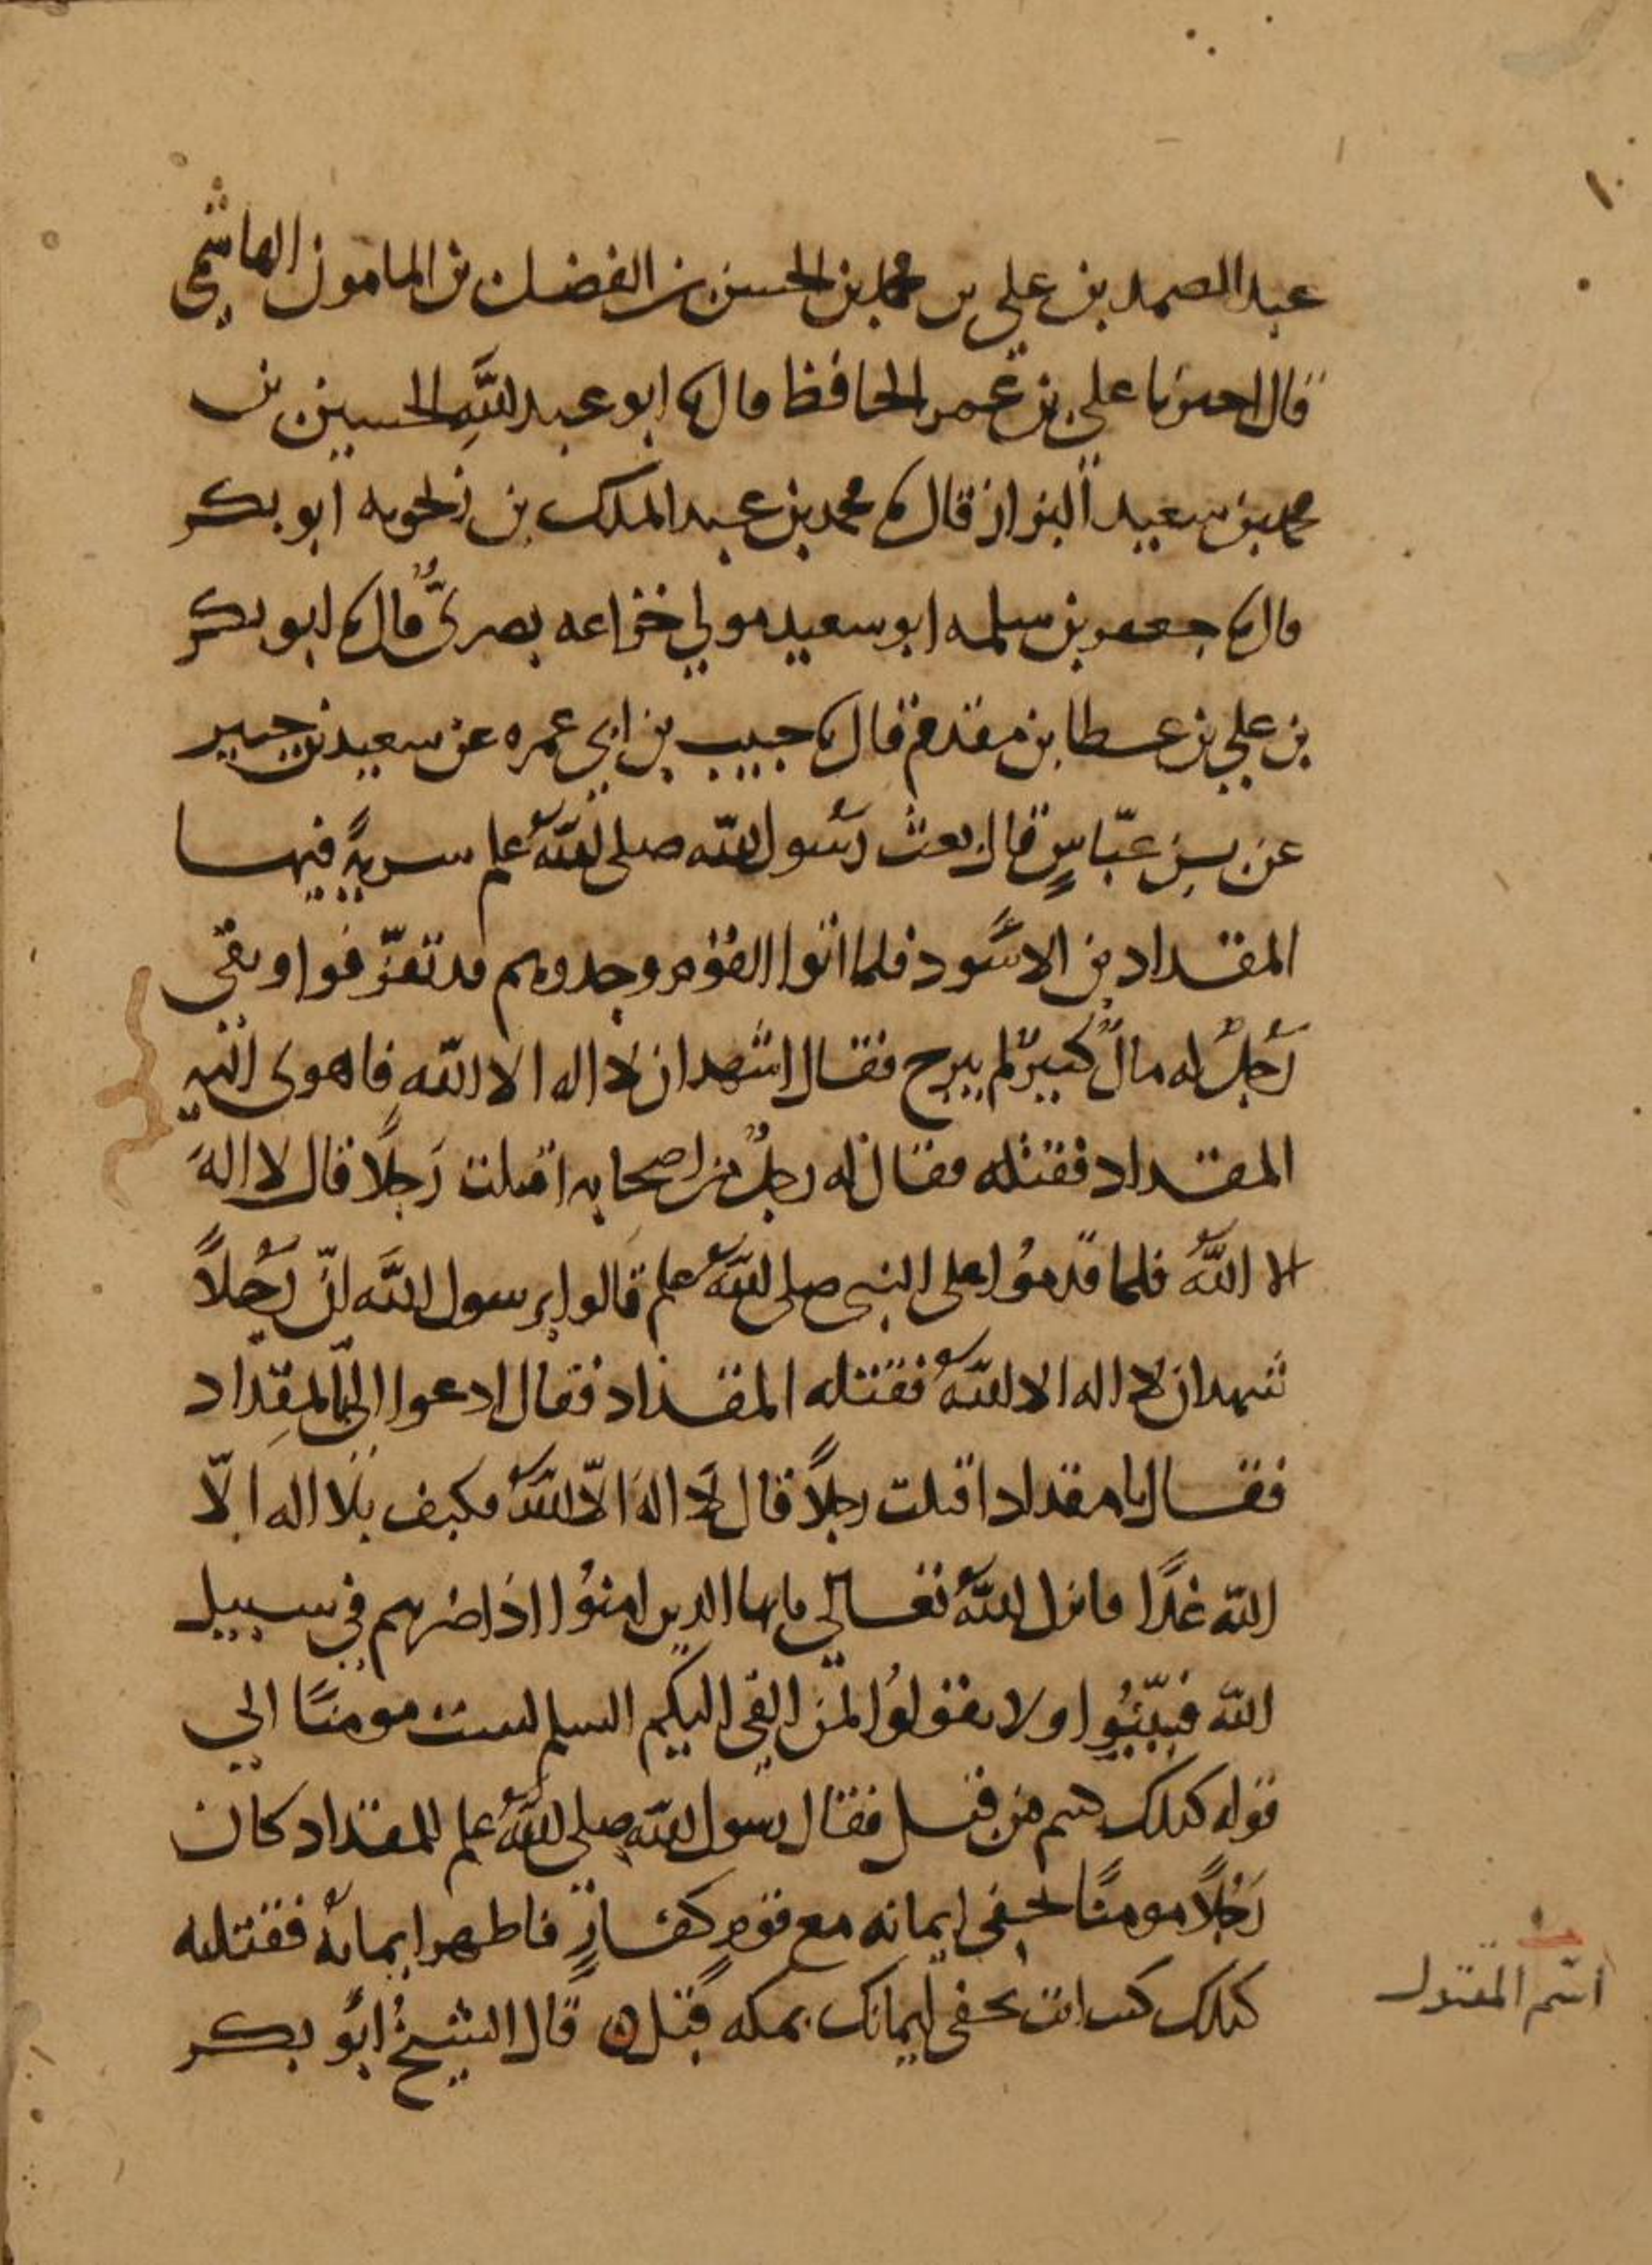 عبد الصمد بن علي بن محمد بن الحسن بن الفضل بن المامون الهاشمي
قال اخبرنا علي بن عمر الحافظ قال نا ابو عبد الله الحسين بن
محمد بن سعيد البزاز قال نا محمد بن عبد الملك بن زنجويه ابو بكر
قال نا جعفر بن سلمه ابو سعيد مولي خزاعه بصريٌّ قال نا ابو بكر
بن علي بن عطا بن مقدم قال نا حبيب بن ابي عمره عن سعيد بن جبير
عن بن عبّاسٍ قال بعث رسُول الله صلى اللهُ علم سريةً فيها
المقداد بن الاسود فلما اتوا القوم وجدوهم قد تفرّقوا وبقي
رَجلٌ له مالٌ كثيرٌ لم يبرح فقال اشهد ان لا اله الا الله فاهوى اليه
المقداد فقتله فقال له رجلٌ من اصحابه اقتلت رَجلًا قال لا الهَ
الا اللهُ فلما قدمُوا على النبي صلى اللهُ علم قالوا يرسول الله انّ رَجُلاً
شهد ان لا اله الا اللهُ فقتله المقداد فقال ادعوا اليّ المِقداد
فقال يا مقداد اقتلت رجلاً قال لا الهَ الّا اللهُ فكيف بلا اله الّا
الله غدًا فانزل اللهُ تعالي يايها الذين امنوُا اذا ضربتم في سبيل
الله فتبيّنُوا ولا تقولوُا لمن القى اليكم السلم لست مومنًا الي
قوله كذلك كنتم من قبل فقال رسول الله صلى اللهُ علم للمقداد كان
رَجُلاً مومنًا يخفي ايمانه مع قومٍ كفارٍ فاظهر ايمانهُ فقتلته
كذلك كنت انت تخفي ايمانك بمكه قبل ه قال الشيخُ ابُو بكر
اسم المقتول